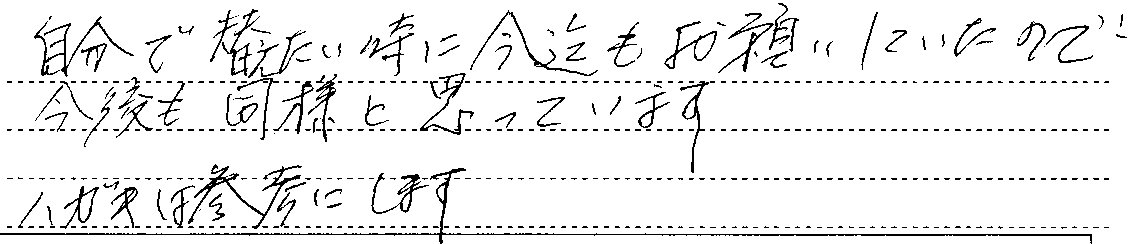 自分で替えたい時に今迄もお願いしていたので
今後も同様と思っています
ハガキは参考にします